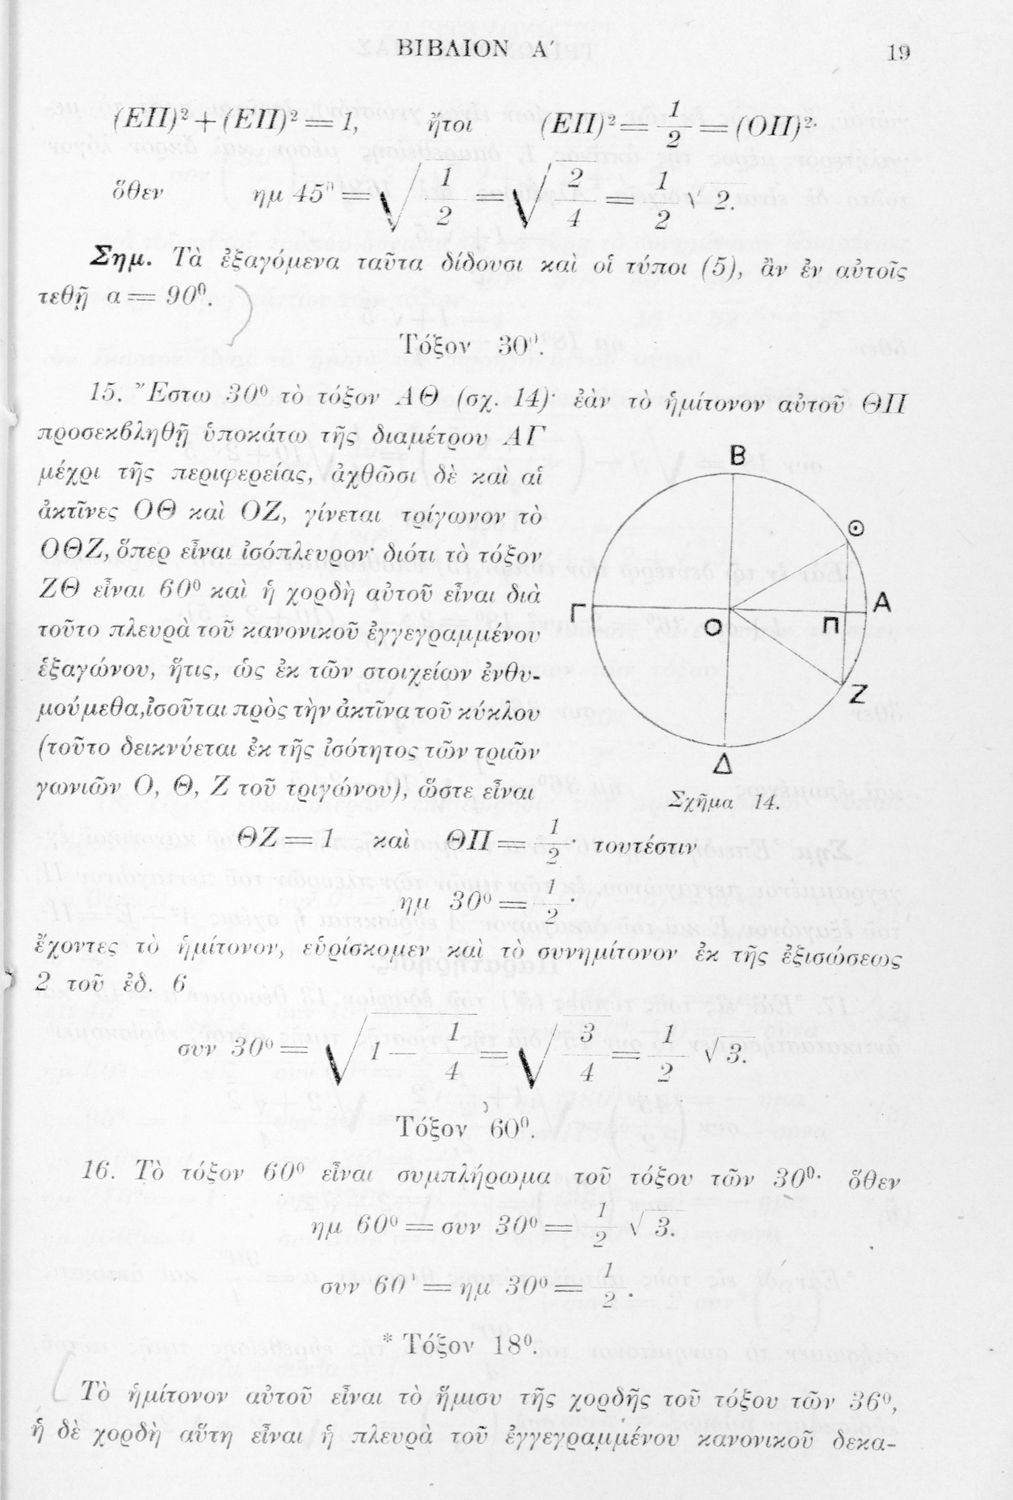 ΒΙΒΛΙΟΝ Α΄ 19
(ΕΠ)² + (ΕΠ)² = 1, ἤτοι (ΕΠ)² = 1/2 = (ΟΠ)²·
ὅθεν ημ 45⁰ = √(1/2) = √(2/4) = 1/2 √2.
Σημ. Τὰ ἐξαγόμενα ταῦτα δίδουσι καὶ οἱ τύποι (5), ἂν ἐν αὐτοῖς
τεθῇ α = 90⁰.
Τόξον 30⁰.
15. Ἔστω 30⁰ τὸ τόξον ΑΘ (σχ. 14)· ἐὰν τὸ ἡμίτονον αὐτοῦ ΘΠ
προσεκβληθῇ ὑποκάτω τῆς διαμέτρου ΑΓ
μέχρι τῆς περιφερείας, ἀχθῶσι δὲ καὶ αἱ
ἀκτῖνες ΟΘ καὶ ΟΖ, γίνεται τρίγωνον τὸ
ΟΘΖ, ὅπερ εἶναι ἰσόπλευρον· διότι τὸ τόξον
ΖΘ εἶναι 60⁰ καὶ ἡ χορδὴ αὐτοῦ εἶναι διὰ
τοῦτο πλευρὰ τοῦ κανονικοῦ ἐγγεγραμμένου
ἑξαγώνου, ἥτις, ὡς ἐκ τῶν στοιχείων ἐνθυ-
μούμεθα, ἰσοῦται πρὸς τὴν ἀκτῖνα τοῦ κύκλου
(τοῦτο δεικνύεται ἐκ τῆς ἰσότητος τῶν τριῶν
γωνιῶν Ο, Θ, Ζ τοῦ τριγώνου), ὥστε εἶναι
Β
Θ
Γ
Ο
Π
Α
Ζ
Δ
Σχῆμα 14.
ΘΖ = 1 καὶ ΘΠ = 1/2· τουτέστιν
ημ 30⁰ = 1/2·
ἔχοντες τὸ ἡμίτονον, εὑρίσκομεν καὶ τὸ συνημίτονον ἐκ τῆς ἐξισώσεως
2 τοῦ ἐδ. 6
συν 30⁰ = √(1 — 1/4) = √(3/4) = 1/2 √3.
Τόξον 60⁰.
16. Τὸ τόξον 60⁰ εἶναι συμπλήρωμα τοῦ τόξου τῶν 30⁰· ὅθεν
ημ 60⁰ = συν 30⁰ = 1/2 √3.
συν 60⁰ = ημ 30⁰ = 1/2.
* Τόξον 18⁰.
Τὸ ἡμίτονον αὐτοῦ εἶναι τὸ ἥμισυ τῆς χορδῆς τοῦ τόξου τῶν 36⁰,
ἡ δὲ χορδὴ αὕτη εἶναι ἡ πλευρὰ τοῦ ἐγγεγραμμένου κανονικοῦ δεκα-